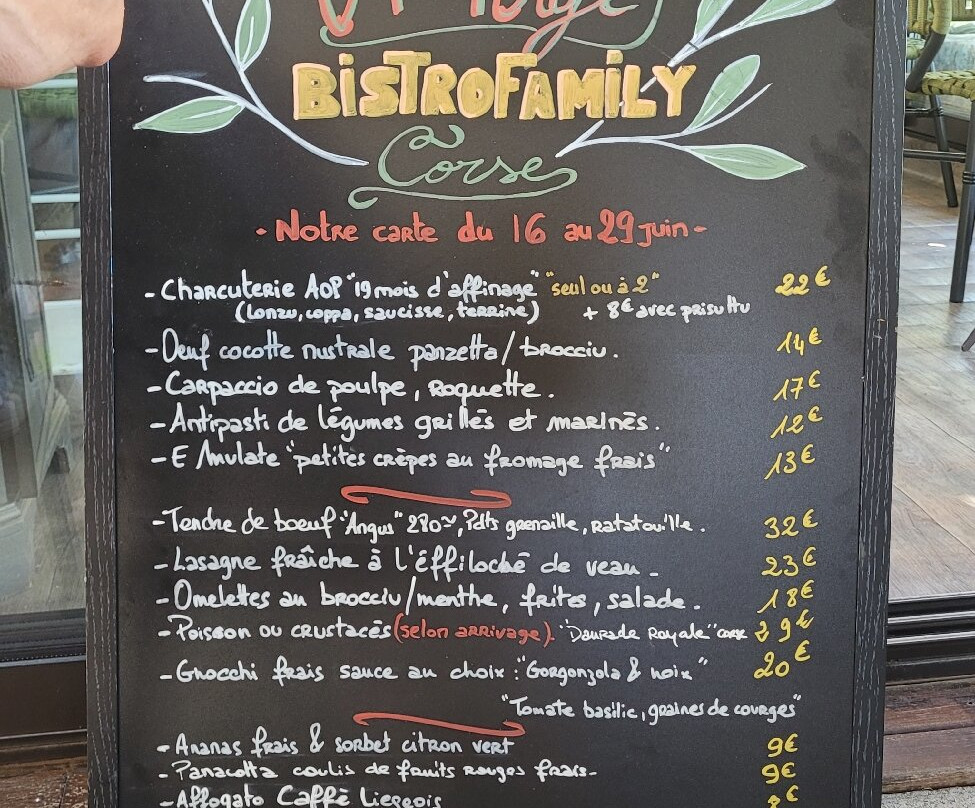 BISTROFAMILY
Corse
- Notre carte du 16 au 29 juin -
- Charcuterie AOP "19 mois d'affinage" "seul ou à 2" 22€
(Lonzu, coppa, saucisse, terrine) + 8€ avec prisuttu
- Oeuf cocotte nustrale panzetta/brocciu. 14€
- Carpaccio de poulpe, roquette. 17€
- Antipasti de légumes grillés et marinés. 12€
- E Mulate "petites crèpes au fromage frais" 13€
- Tendre de boeuf "Angus" 280~, Pdts grenaille, ratatouille. 32€
- Lasagne fraîche à l'éffiloché de veau - 23€
- Omelettes au brocciu/menthe, frites, salade. 18€
- Poisson ou crustacés (selon arrivage). "Daurade Royale" corse 29€
- Gnocchi frais sauce au choix : "Gorgonzola & noix" 20€
"Tomate basilic, graines de courges"
- Ananas frais & sorbet citron vert 9€
- Panacotta coulis de fruits rouges frais - 9€
- Affogato Caffè Liegeois €